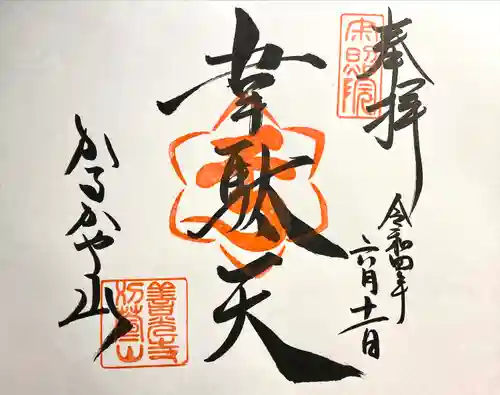 奉拝
令和四年
六月十一日
韋駄天
かるかや山
宋照院
善光寺
刈萱山